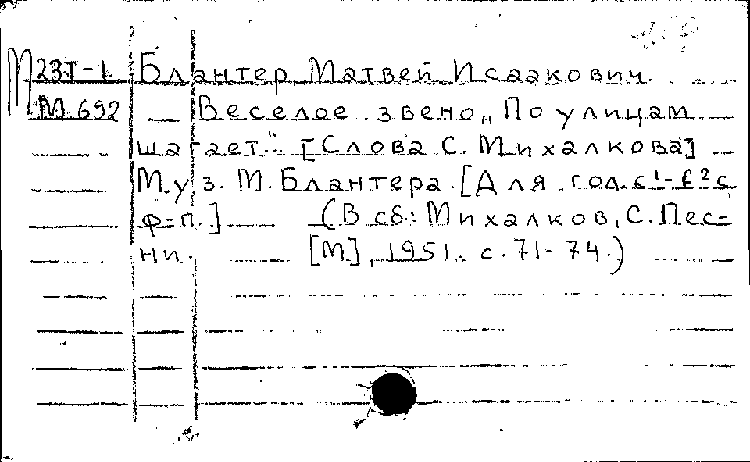 М 23Т-1 Блантер Матвей Исаакович.
М 692 Веселое звено „По улицам
шагает". [Слова С. Михалкова]
Муз. М. Блантера. [Для гол. с¹-е² с
ф-п.] (В сб: Михалков, С. Пес-
ни. [М], 1951. с. 71-74.)